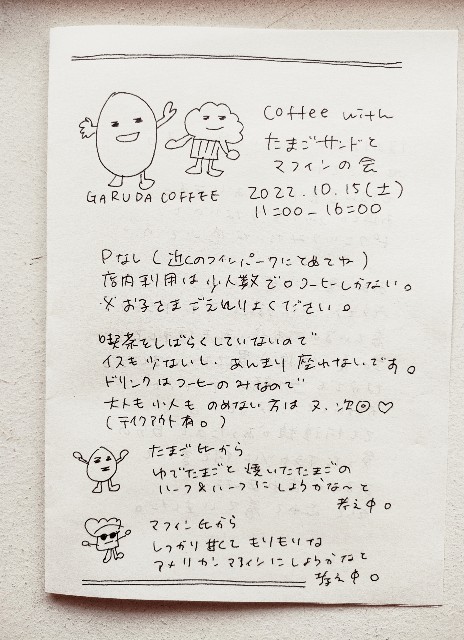 Coffee with
たまごサンドと
マフィンの会
GARUDA COFFEE
2022.10.15(土)
11:00-16:00
Pなし(近くのコインパークにとめてね)
店内利用は少人数で◎コーヒーしかない。
※お子さまごえんりょください。
喫茶をしばらくしていないので
イスも少ないし、あんまり座れないです。
ドリンクはコーヒーのみなので
大人も小人ものめない方は又、次回♡
(テイクアウト有。)
たまご比から
ゆでたまごと焼いたたまごの
ハーフ&ハーフにしようかな〜と
考え中。
マフィン比から
しっかり甘くてもりもりな
アメリカンマフィンにしようかなと
考え中。